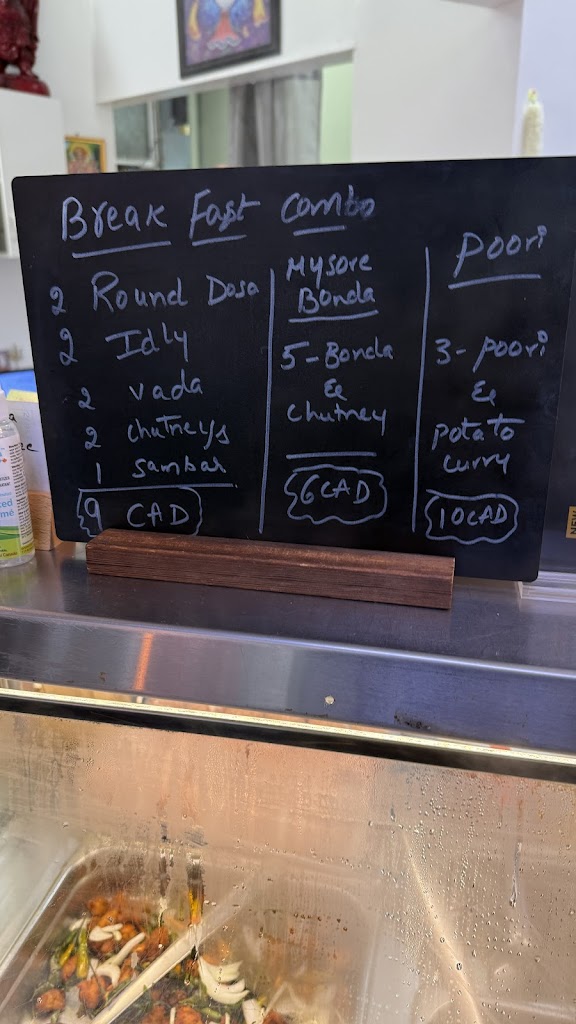 Break Fast Combo
2 Round Dosa
2 Idly
2 vada
2 chutneys
1 sambar
9 CAD
Mysore
Bonda
5-Bonda
&
chutney
6 CAD
Poori
3-poori
&
potato
curry
10 CAD
NEW